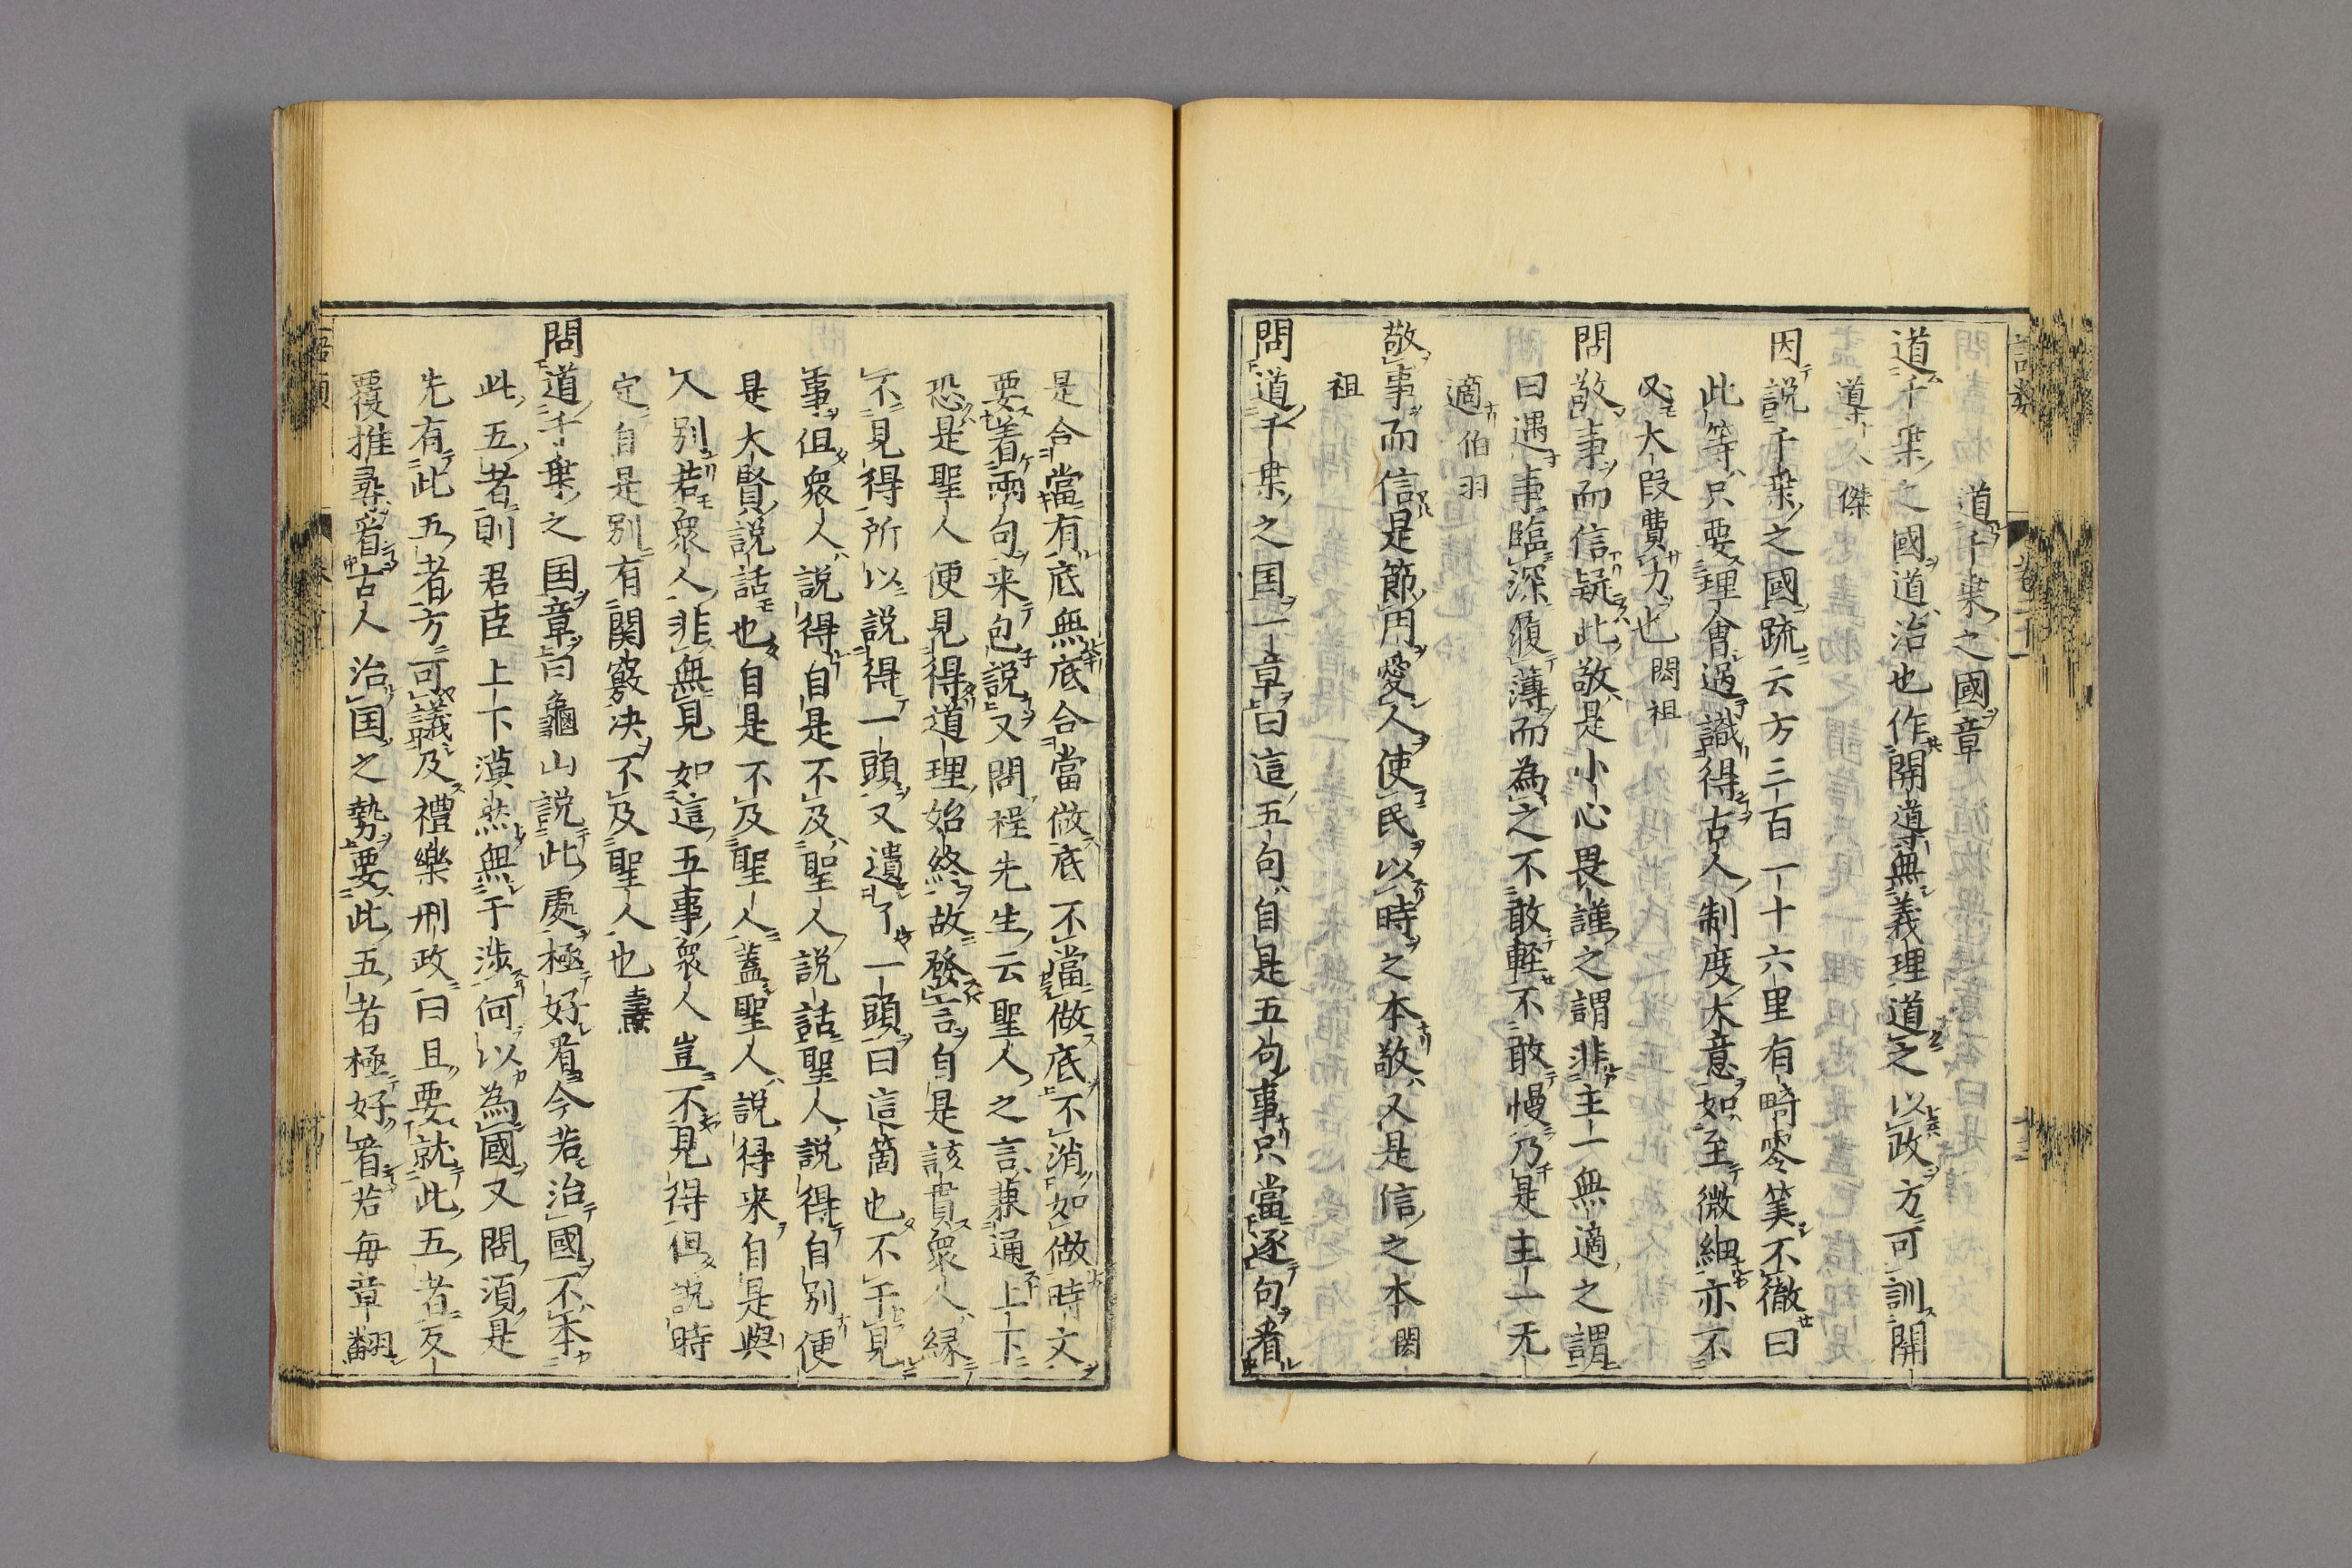 道千乗之國章
道千乗之國道治也作開導無義理道之以政方可訓開
導人傑
因說千乗之國疏云方三百一十六里有畸零筭不徹曰
此等只要理會過識得古人制度大意如至微細亦不
必大段費力也閎祖
問敬事而信疑此敬是小心畏謹之謂非主一無適之謂
曰遇事臨深履薄而為之不敢軽不敢慢乃是主一无
適伯羽
敬事而信是節用愛人使民以時之本敬又是信之本閎
祖
問道千乗之国一章曰這五句自是五句事只當逐句看
是合當有底無底合當做底不當做底不消如做時文
要着兩句来包說又問程先生云聖人之言兼通上下
恐是聖人便見得道理始終故發言自是該貫衆人縁
不見得所以說得一頭又遺了一頭曰這箇也不干見
事但衆人說得自是不及聖人說話聖人說得自別便
是大賢說話也自是不及聖人蓋聖人說得来自是與
人別若衆人非無見如這五事衆人豈不見得但說時
定自是別有関竅决不及聖人也燾
問道千乗之国章曰龜山說此處極好看今若治國不本
此五者則君臣上下漠然無干涉何以為國又問須是
先有此五者方可議及禮樂刑政曰且要就此五者反
覆推尋看古人治国之勢要此五者極好看若每章翻